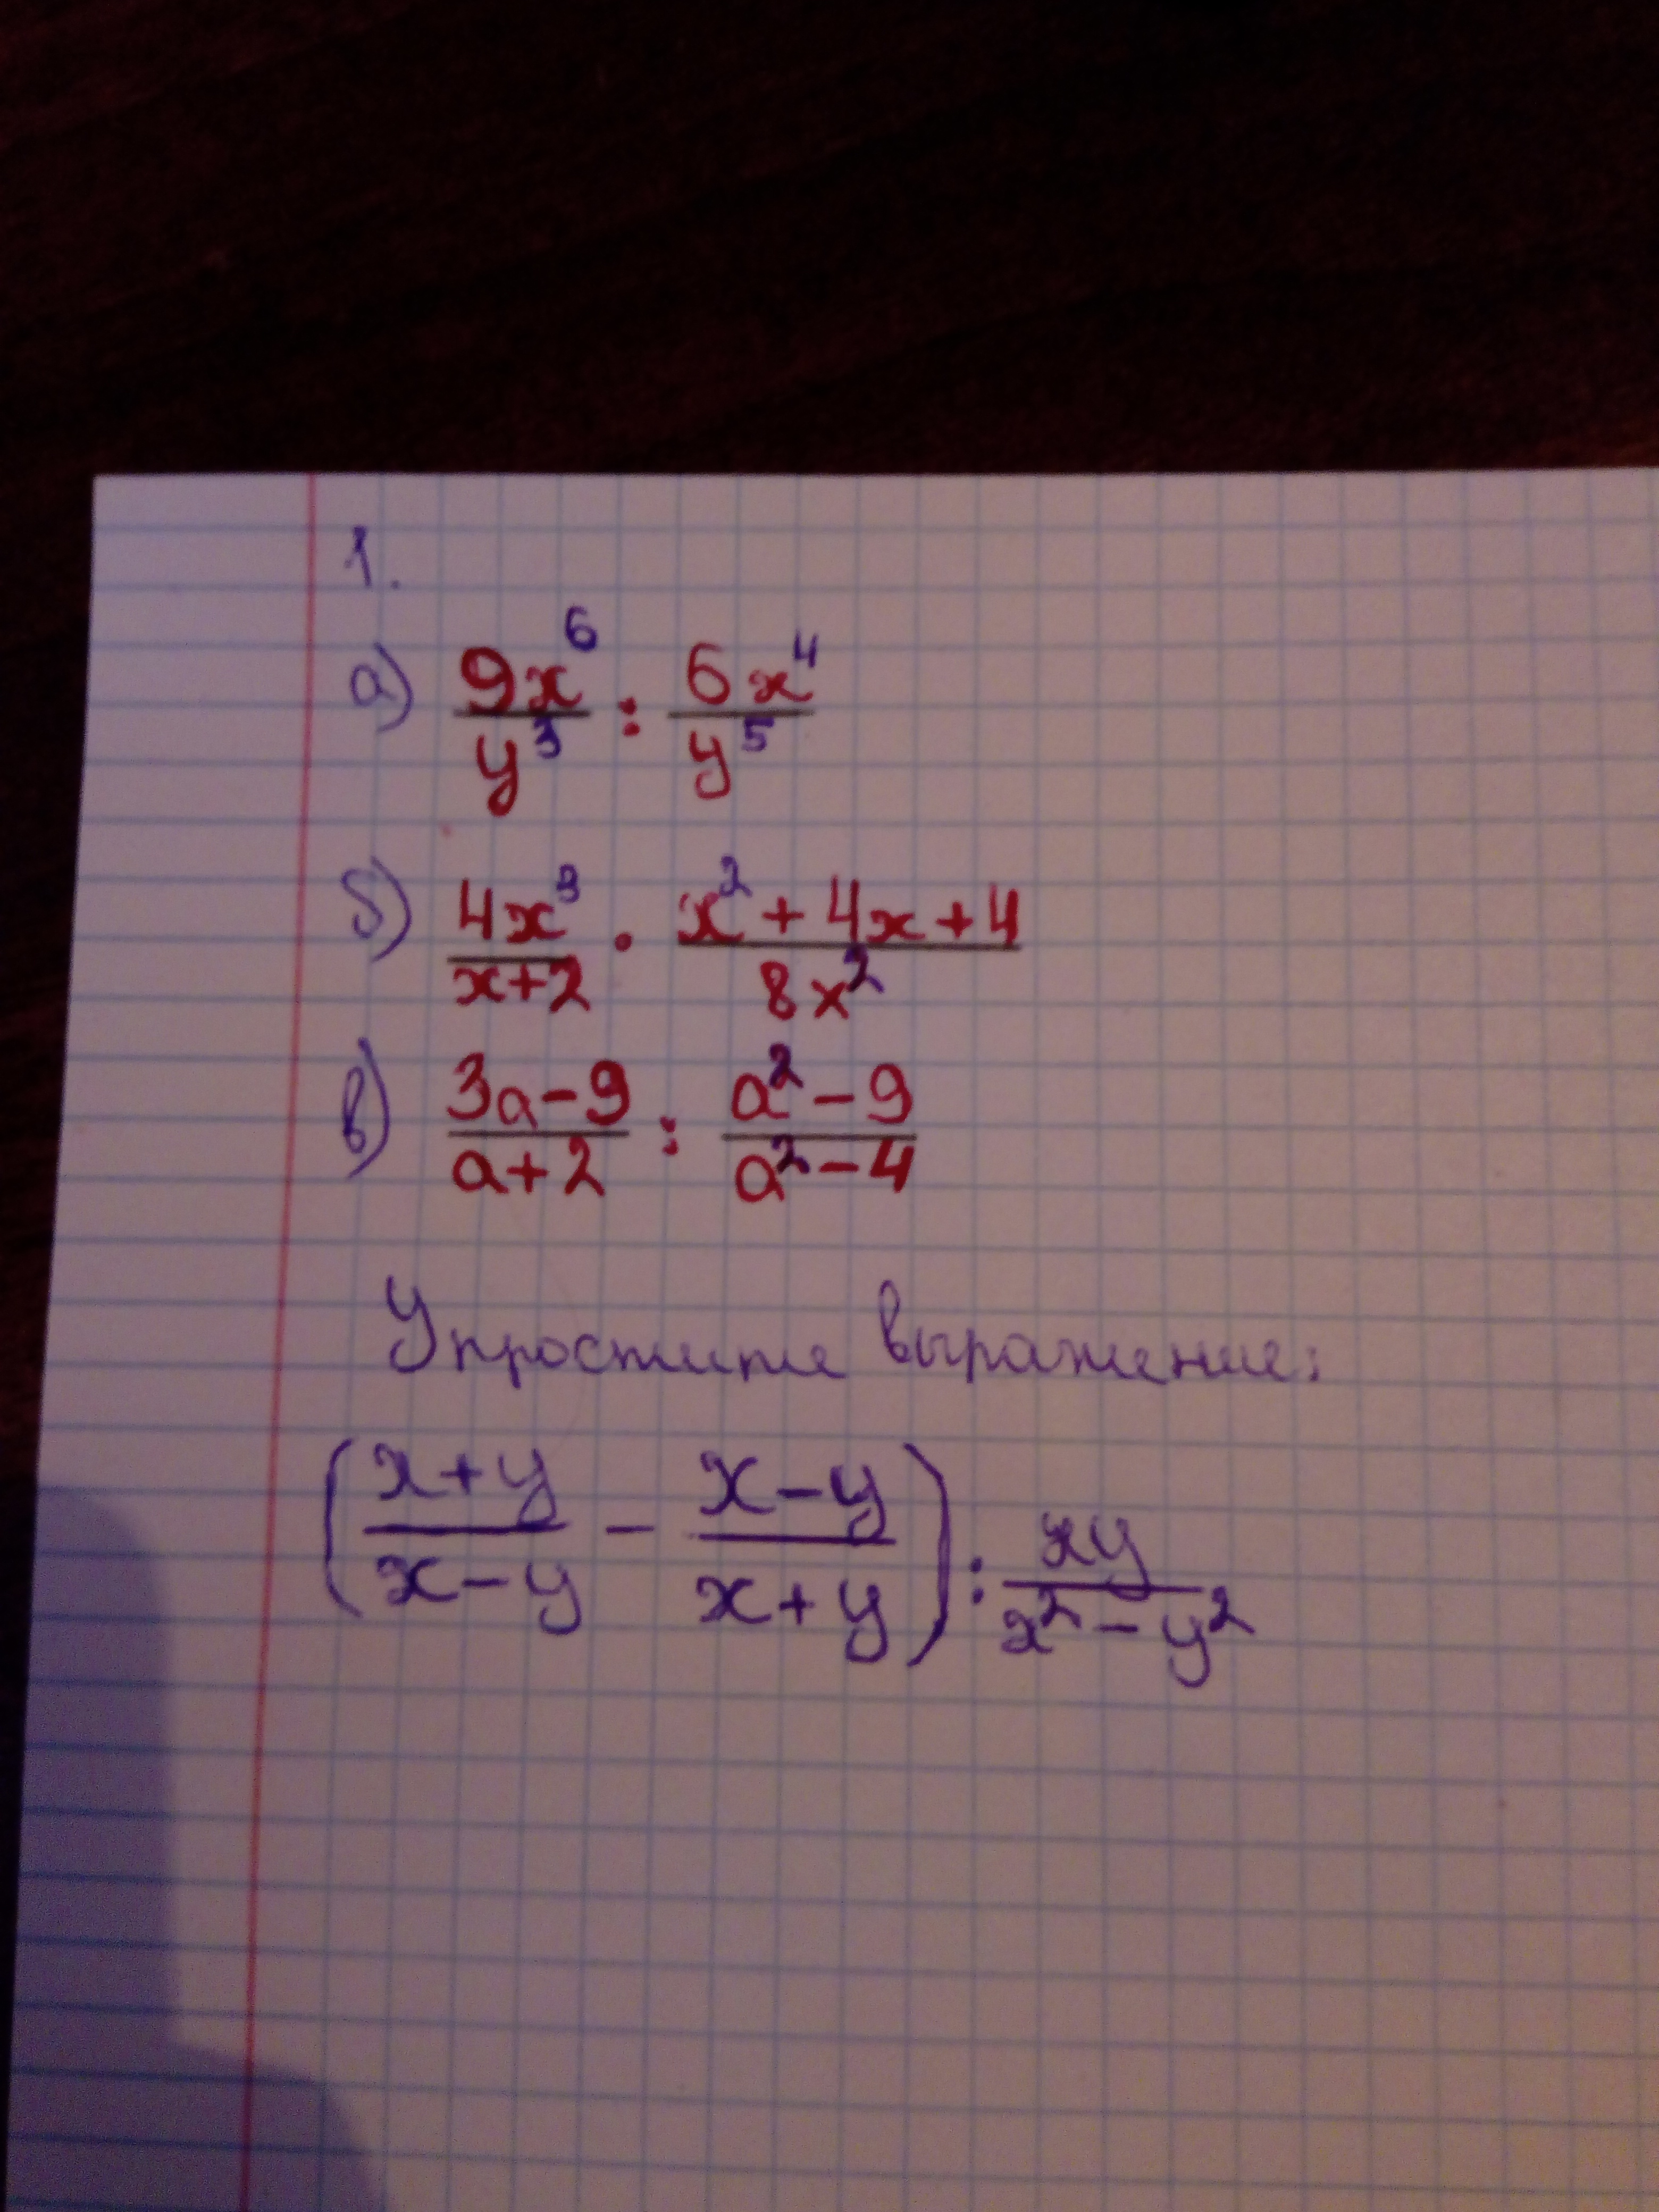 1.
а) 9x⁶/y³ : 6x⁴/y⁵
б) 4x³/(x+2) · (x²+4x+4)/(8x²)
в) (3a-9)/(a+2) : (a²-9)/(a²-4)
Упростите выражение:
((x+y)/(x-y) - (x-y)/(x+y)) : xy/(x²-y²)